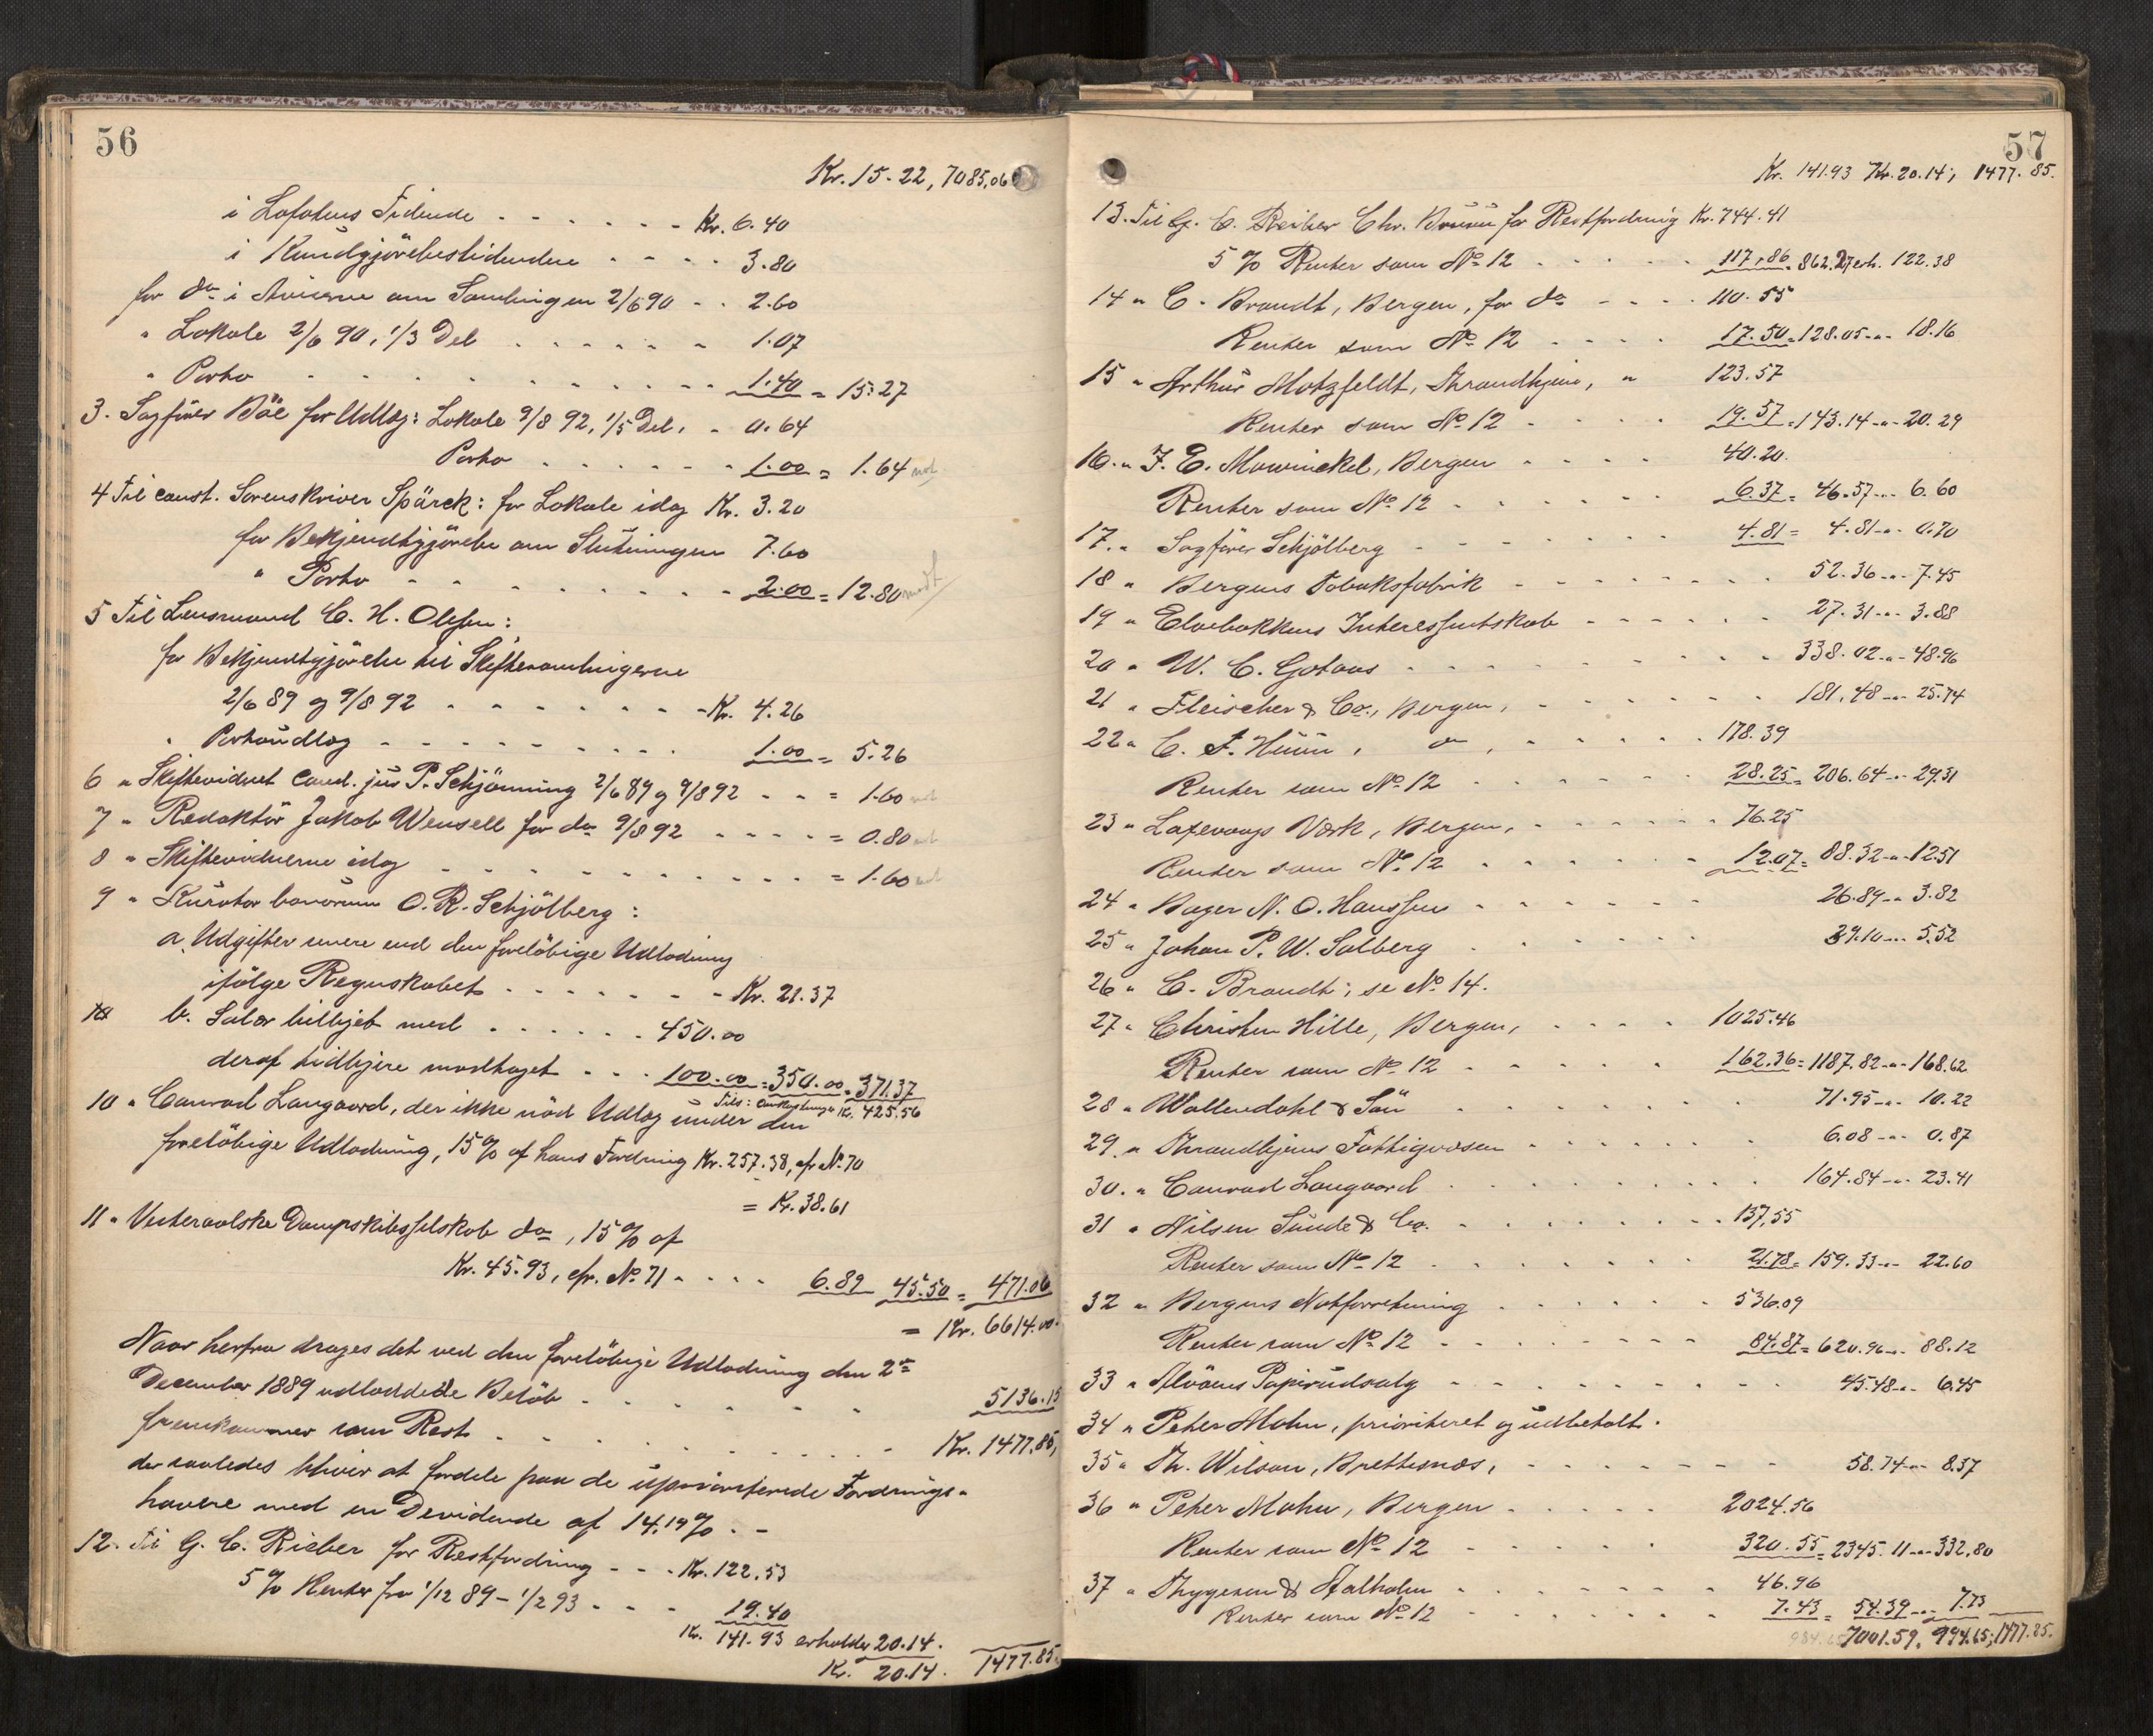 56
Kr. 15.22, 7085,06
i Lofotens Tidende - - - - - - Kr. 6.40
i Kundgjörelsestidenden - - - - 3.80
for do i Aviserne om Samlingen 2/6 90 - - 2.60
" Lokale 2/6 90, 1/3 Del - - - - - - 1.07
" Porto - - - - - - - - - 1.40 = 15.27
3. Sagförer Böe for Udlæg: Lokale 9/8 92, 1/5 Del, - 0.64
Porto - - - - - - 1.00 = 1.64
4 Til const. Sorenskriver Spärck: for Lokale idag Kr. 3.20
for Bekjendtgjörelse om Slutningen 7.60
" Porto - - - - - - - - 2.00 = 12.80
5 Til Lensmand C. H. Olsen:
for Bekjendtgjörelse til Skiftesamlingerne
2/6 89 og 9/8 92 - - - - - - - Kr. 4.26
" Portoudlæg - - - - - - - - 1.00 = 5.26
6 " Skiftevidnet Cand. jus P. Schjönning 2/6 89 og 9/8 92 - - = 1.60
7 " Redaktör Jakob Wensell for do 9/8 92 - - - - = 0.80
8 " Skiftevidnerne idag - - - - - - - - - - = 1.60
9 " Kurator bonorum O. R. Schjölberg:
a. Udgifter senere end den foreløbige Udlodning
ifölge Regnskabet - - - - - - - Kr. 21.37
b. Salær tilkjet med - - - - - - 450.00
deraf tidligere modtaget - - - 100.00 = 350.00 = 371.37
Tils: Kr. 425.56
10 " Conrad Langaard, der ikke nöd Udlæg under den
forelöbige Udlodning, 15 % af hans Fordring Kr. 257.38, cfr. No 70
= Kr. 38.61
11 " Vesteraalske Dampskibsselskab do, 15 % af
Kr. 45.93, cfr. No 71 - - - - 6.89 45.50 = 471.06
= Kr. 6614.00.
Naar herfra drages det ved den forelöbige Udlodning den 2den
December 1889 udloddede Belöb - - - - - - 5136.15
fremkommer som Rest - - - - - - - - - Kr. 1477.85,
der saaledes bliver at fordele paa de uprioriterede Fordrings-
havere med en Devidende af 14.19 %. -
12. Til G. C. Rieber for Restfordring - - - Kr. 122.53
5 % Renter fra 1/12 89 - 1/2 93 - - - 19.40
Kr. 141.93 erholder 20.14.
Kr. 20.14. 1477.85.
57
Kr. 141.93 Kr. 20.14, 1477.85.
13. Til G. C. Rieber Chr. Bruun for Restfordring Kr. 744.41
5 % Renter som No 12 - - - - - 117.86 = 862.27 erh. 122.38
14 " C. Brandt, Bergen, for do - - - - 110.55
Renter som No 12 - - - - 17.50 = 128.05 -"- 18.16
15 " Arthur Motzfeldt, Thrandhjem, " 123.57
Renter som No 12 - - - - 19.57 = 143.14 -"- 20.29
16. " F. E. Mowinckel, Bergen - - - - 40.20.
Renter som No 12 - - - - - - 6.37 = 46.57 -"- 6.60
17. " Sagförer Schjölberg - - - - - - - 4.81 = 4.81 -"- 0.70
18 " Bergens Tobaksfabrik - - - - - - - - 52.36 -"- 7.45
19 " Elvebakkens Interessentskab - - - - - - 27.31 -"- 3.88
20 " W. C. Gotaas - - - - - - - - - - 338.02 -"- 48.96
21 " Fleischer & Co., Bergen, - - - - - - - 181.48 -"- 25.74
22 " C. F. Huun, do, - - - - - - 178.39
Renter som No 12 - - - - - - 28.25 = 206.64 -"- 29.31
23 " Laxevaags Værk, Bergen, - - - - - - - 76.25
Renter som No 12 - - - - - - 12.07 = 88.32 -"- 12.51
24 " Bager N. O. Hanssen - - - - - - 26.89 -"- 3.82
25 " Johan P. W. Solberg - - - - - - 39.10 -"- 5.52
26 " C. Brandt, se No 14.
27 " Christen Hille, Bergen, - - - - 1025.46
Renter som No 12 - - - - - - 162.36 = 1187.82 -"- 168.62
28 " Wallendahl & Sön - - - - - - - 71.95 -"- 10.22
29. " Thrandhjems Fattigvæsen - - - - - - - 6.08 -"- 0.87
30. " Conrad Langaard - - - - - - - - - 164.84 -"- 23.41
31 " Nilsen Sunde & Co. - - - - - - - - 137,55
Renter som No 12 - - - - - - - 21.78 = 159.33 -"- 22.60
32 " Bergens Notforretning - - - - - - 536.09
Renter som No 12 - - - - - - - 84.87 = 620.96 -"- 88.12
33 " Alvöens Papirudsalg - - - - - - - - - 45.48 -"- 6.45
34 " Peter Mohn, prioriteret og udbetalt.
35 " Th. Wilson, Brettesnæs, - - - - - - - - 58.74 -"- 8.37
36 " Peter Mohn, Bergen - - - - - 2024.56
Renter som No 12 - - - - - 320.55 = 2345.11 -"- 332.80
37 " Thygesen & Stalholm - - - - - - - 46.96
Renter som No 12 - - - - - - - 7.43 = 54.39 -"- 7.73
7001.59, 994.65; 1477.85.